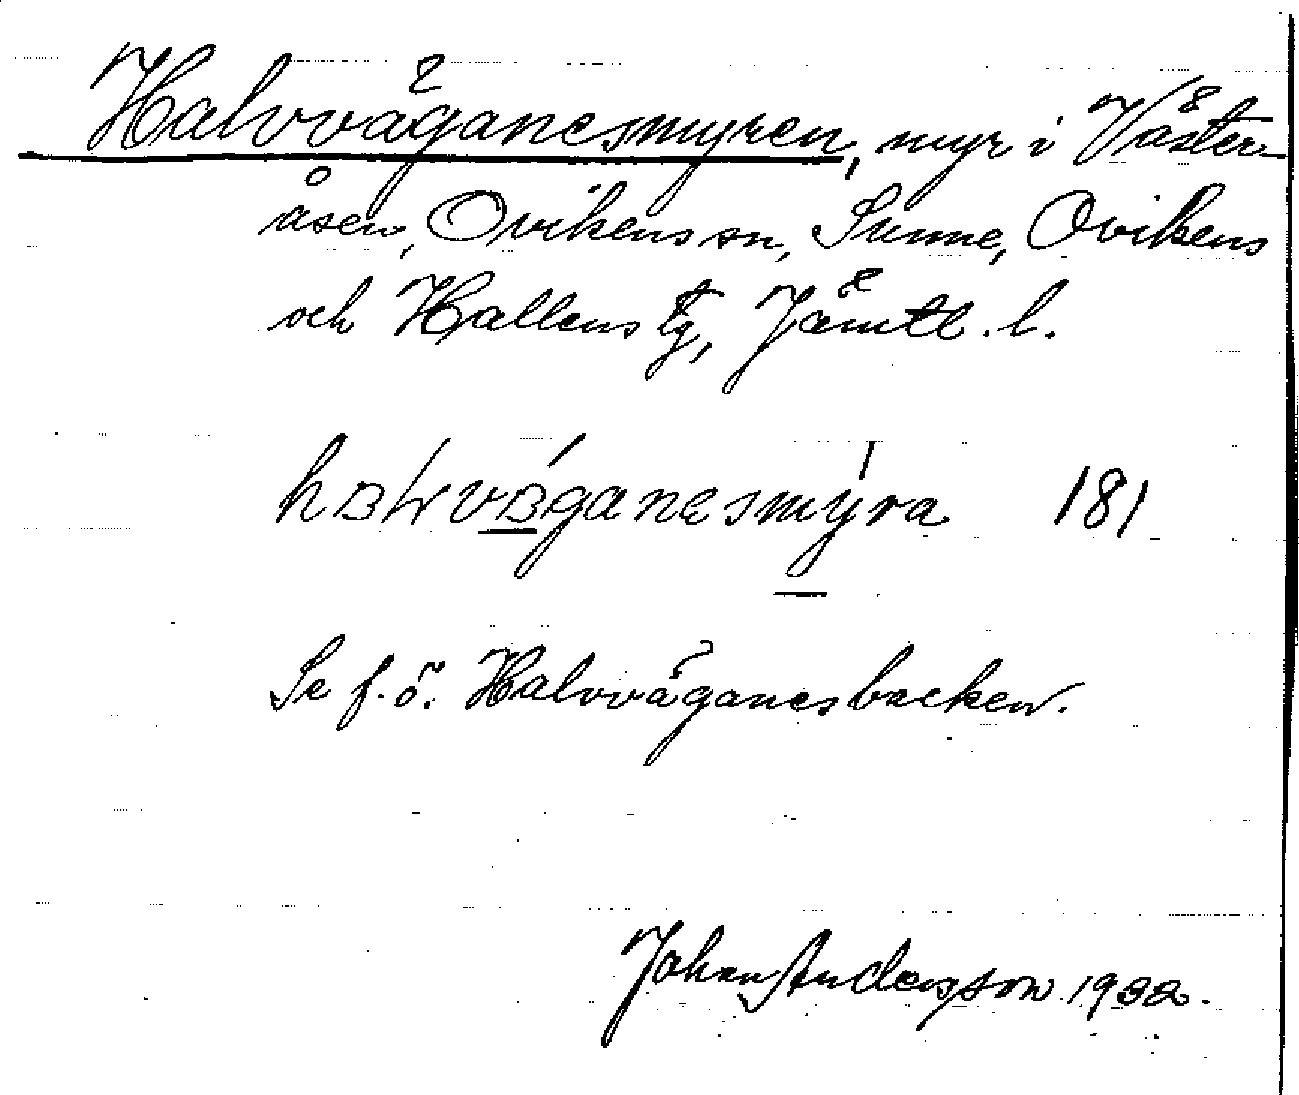 Halvväganesmyren, myr i Väster-
åsen, Ovikens sn, Sunne, Ovikens
och Hallens tg, Jämtl. l.
181
Se f. ö. Halvväganesbacken.
Johan Andersson 1932.